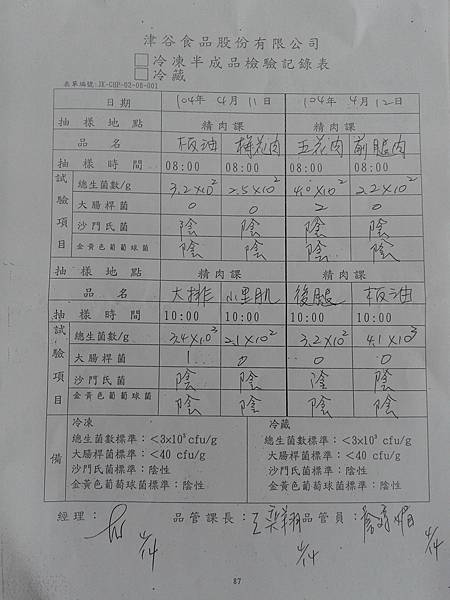 津谷食品股份有限公司
□冷凍半成品檢驗記錄表
□冷藏
表單編號:JK-CHP-02-08-001
日期 104年 4月 11日 104年 4月 12日
抽樣地點 精肉課 精肉課
品名 板油 梅花肉 五花肉 前腿肉
抽樣時間 08:00 08:00 08:00 08:00
試驗項目
總生菌數/g 3.2×10² 2.5×10² 4.0×10² 2.2×10²
大腸桿菌 0 0 2 0
沙門氏菌 陰 陰 陰 陰
金黃色葡萄球菌 陰 陰 陰 陰
抽樣地點 精肉課 精肉課
品名 大排 小里肌 後腿 板油
抽樣時間 10:00 10:00 10:00 10:00
試驗項目
總生菌數/g 3.4×10³ 2.1×10² 3.2×10² 4.1×10³
大腸桿菌 1 0 0 0
沙門氏菌 陰 陰 陰 陰
金黃色葡萄球菌 陰 陰 陰 陰
備
冷凍
總生菌數標準:<3×10⁵ cfu/g
大腸桿菌標準:<40 cfu/g
沙門氏菌標準:陰性
金黃色葡萄球菌標準:陰性
冷藏
總生菌數標準:<3×10⁵ cfu/g
大腸桿菌標準:<40 cfu/g
沙門氏菌標準:陰性
金黃色葡萄球菌標準:陰性
經理: 品管課長: 品管員:
4/14 4/14 4/14
87